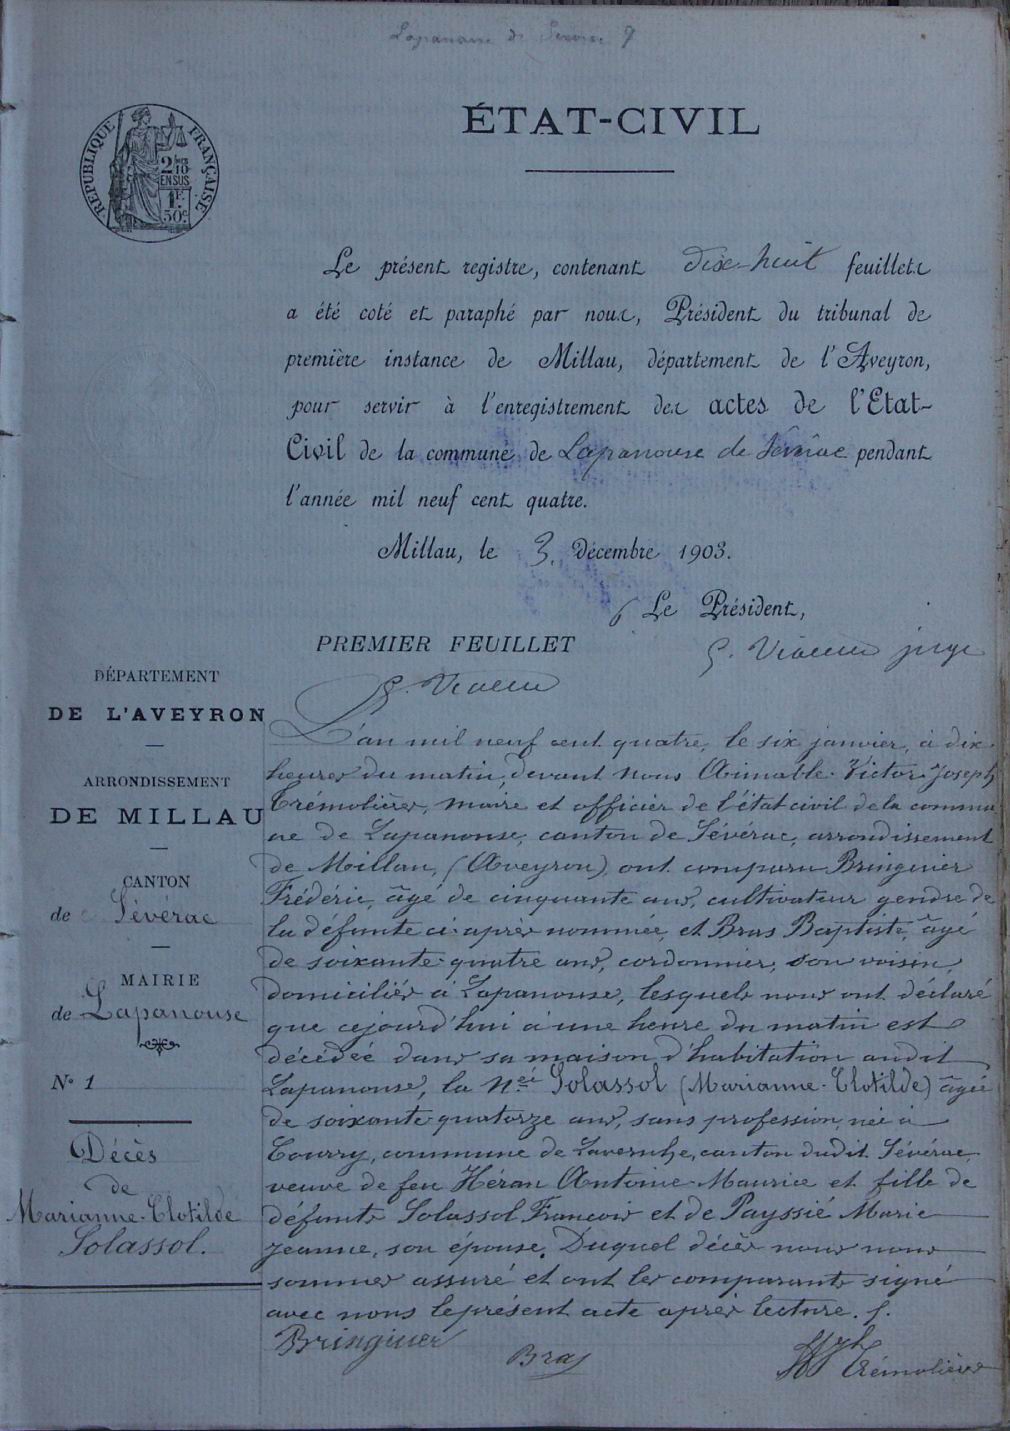 Lapanouse de
ÉTAT-CIVIL
RÉPUBLIQUE FRANÇAISE
2/10
EN SUS
1F
50c
Le présent registre, contenant dix-huit feuillets
a été coté et paraphé par nous, Président du tribunal de
première instance de Millau, département de l'Aveyron,
pour servir à l'enregistrement des actes de l'Etat-
Civil de la commune de Lapanouse de Sévérac pendant
l'année mil neuf cent quatre.
Millau, le 3. Décembre 1903.
Le Président,
juge
PREMIER FEUILLET
DÉPARTEMENT
DE L'AVEYRON
ARRONDISSEMENT
DE MILLAU
CANTON
de Sévérac
MAIRIE
de Lapanouse
N° 1
Décès
de
Marianne-Clotilde
Solassol.
L'an mil neuf cent quatre, le six janvier, à dix
heures du matin, devant nous Aimable-Victor-Joseph
Trémolières, maire et officier de l'état civil de la commu
ne de Lapanouse, canton de Sévérac, arrondissement
de Millau, (Aveyron) ont comparu Bringuier
Frédéric, âgé de cinquante ans, cultivateur gendre de
la défunte ci-après nommée, et Bras Baptiste, âgé
de soixante-quatre ans, cordonnier, son voisin,
domiciliés à Lapanouse, lesquels nous ont déclaré
que cejourd'hui à une heure du matin est
décédée dans sa maison d'habitation audit
Lapanouse, la née Solassol (Marianne-Clotilde) âgée
de soixante-quatorze ans, sans profession, née à
Tourry, commune de Lavernhe, canton dudit Sévérac,
veuve de feu Héran Antoine-Maurice et fille de
défunts Solassol François et de Payssié Marie
Jeanne, son épouse. Duquel décès nous nous
sommes assuré et ont les comparants signé
avec nous le présent acte après lecture.
Bringuier
Bras
Trémolières